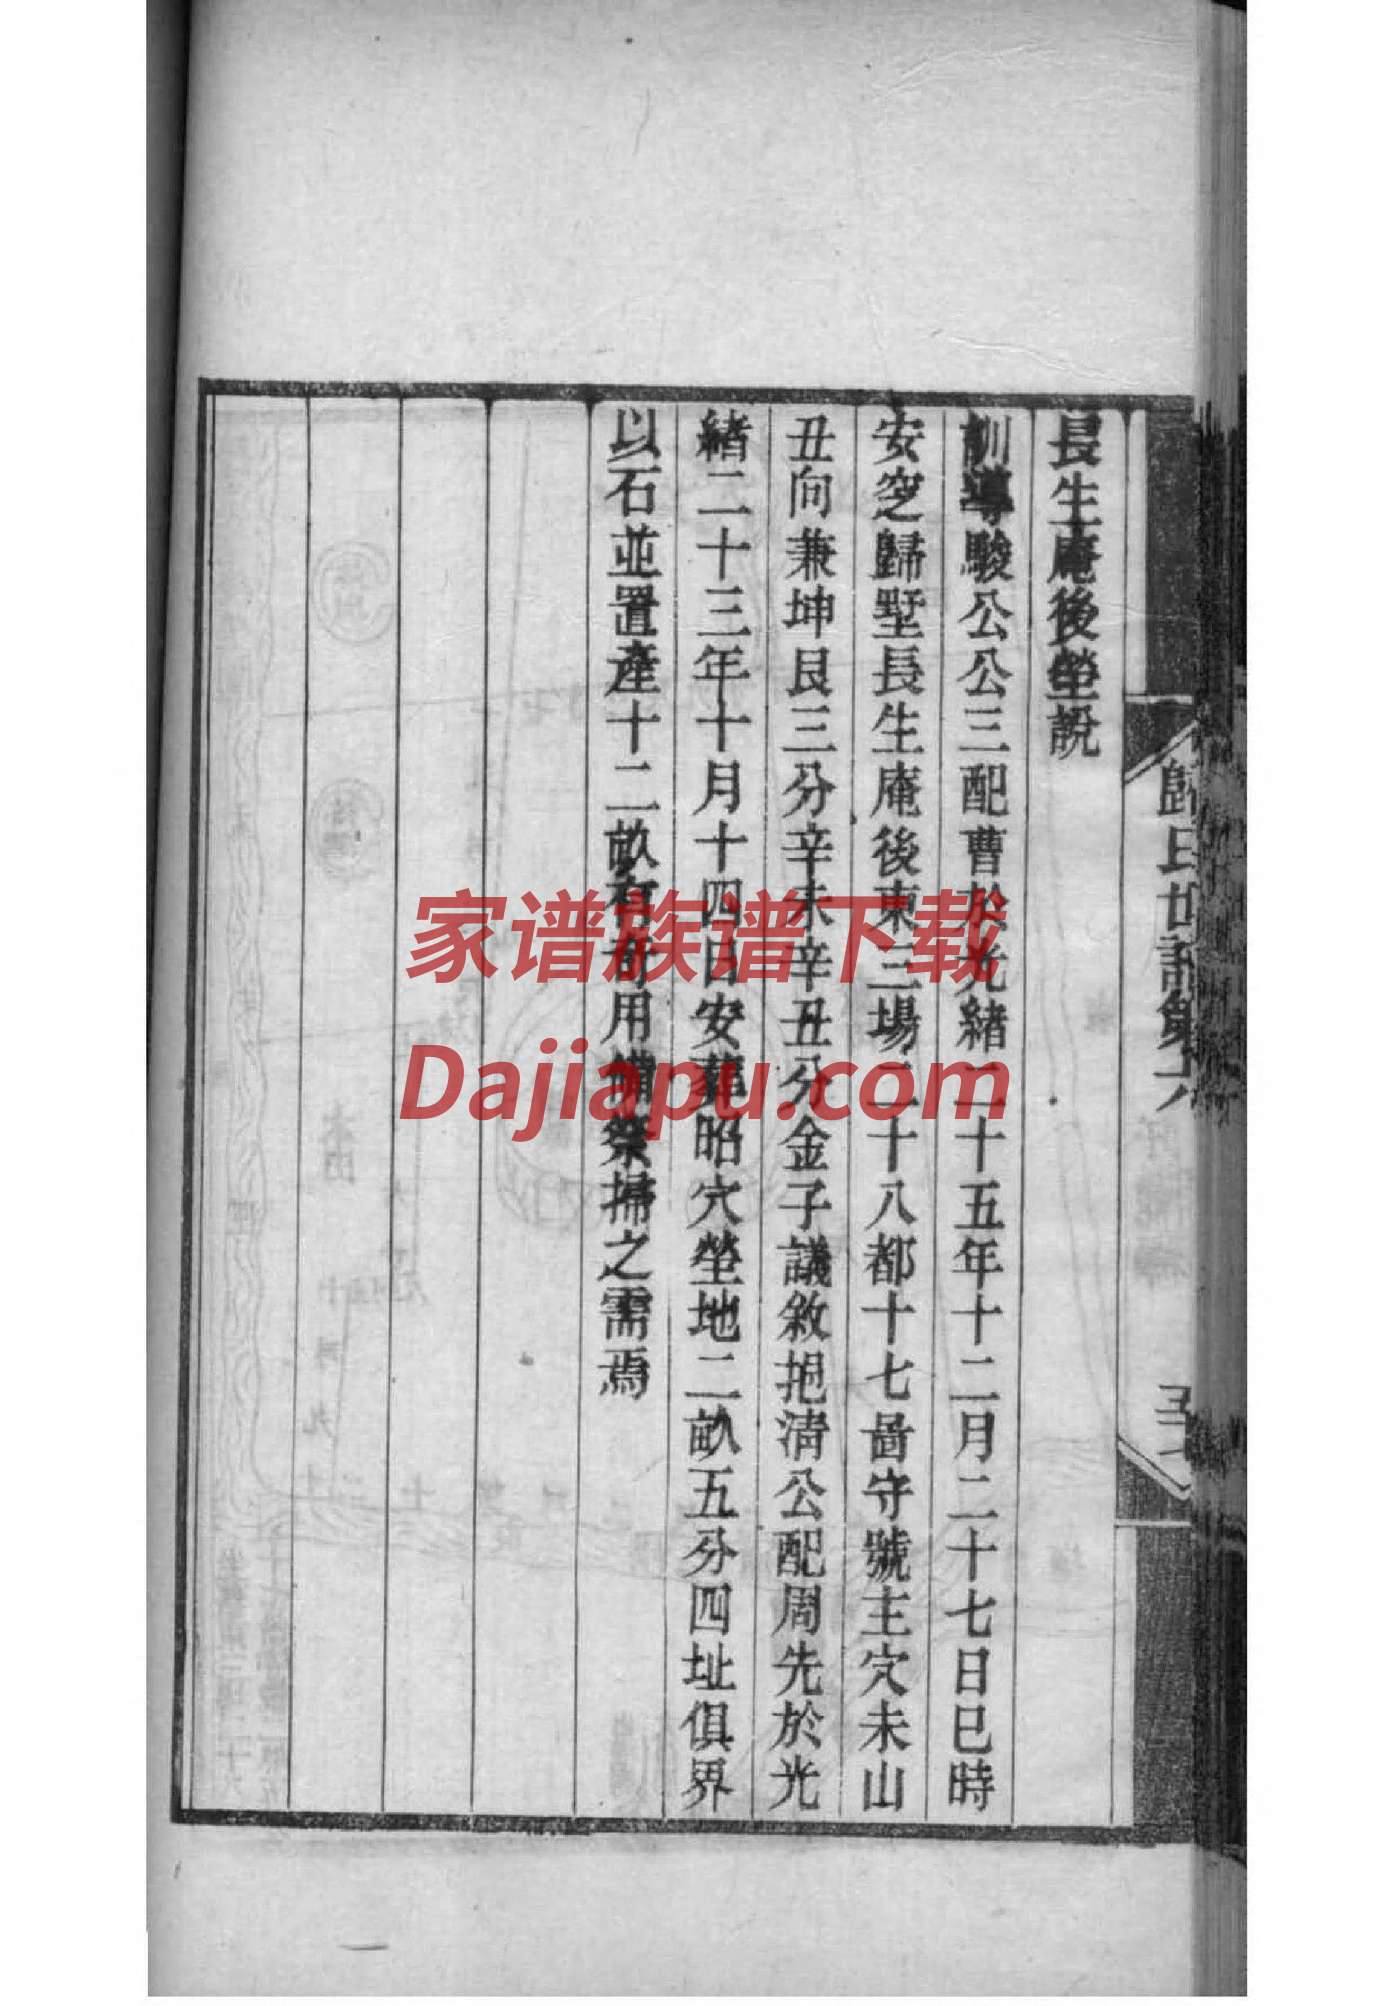 長生庵後塋說
訓導駿公公三配曹於光緒二十五年十二月二十七日巳時
安窆歸墅長生庵後東三場二十八都十七啚守號主穴未山
丑向兼坤艮三分辛未辛丑分金子議敘挹清公配周先於光
緒二十三年十月十四日安葬昭穴塋地二畝五分四址俱界
以石並置產十二畝有奇用備祭掃之需焉
歸氏世譜第六
家谱族谱下载
Dajiapu.com